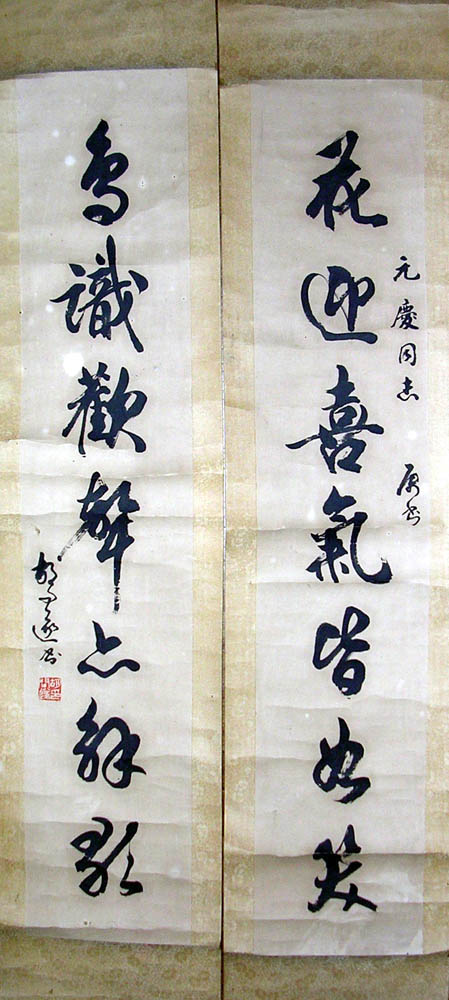 花迎喜氣皆如笑
元慶同志 屬書
鳥識歡聲亦解歌
胡問遂書